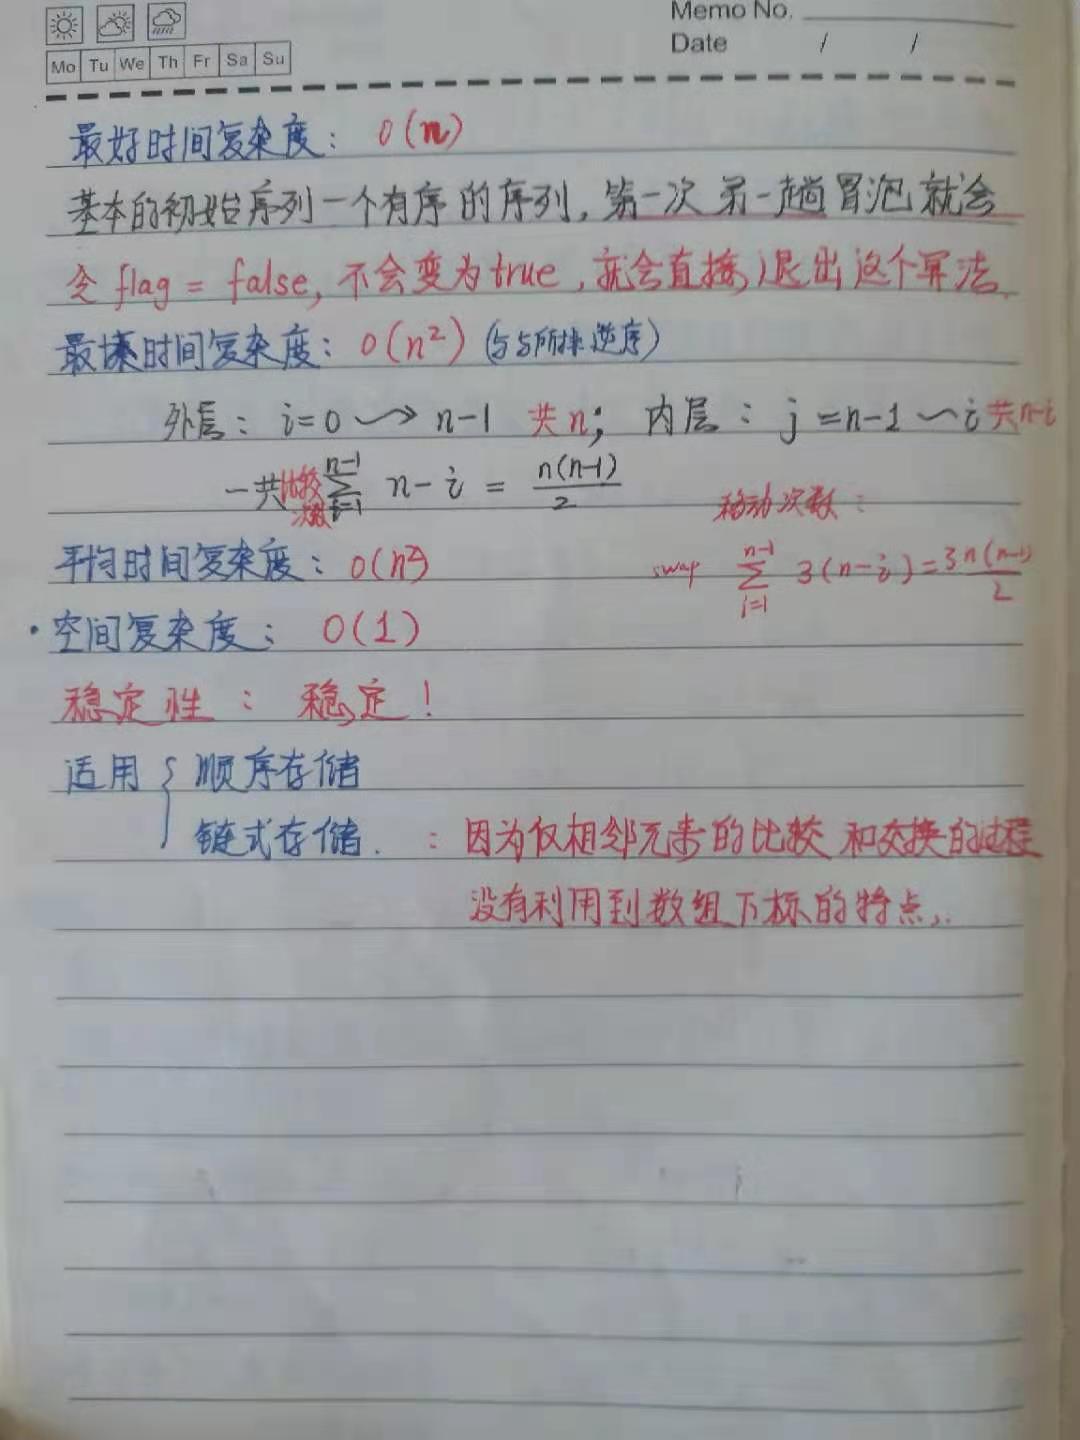 Memo No.
Date / /
Mo Tu We Th Fr Sa Su
最好时间复杂度: O(n)
基本的初始序列一个有序的序列,第一次第一趟冒泡就会
令 flag = false, 不会变为true,就会直接退出这个算法.
最坏时间复杂度: O(n²) (与所排逆序)
外层: i=0 ~> n-1 共n; 内层: j=n-1 ~ i 共n-i
一共比较次数 ∑_{i=1}^{n-1} n-i = n(n-1)/2
移动次数:
平均时间复杂度: O(n²)
swap ∑_{i=1}^{n-1} 3(n-i)=3n(n-1)/2
·空间复杂度: O(1)
稳定性: 稳定!
适用 { 顺序存储
链式存储. : 因为仅相邻元素的比较和交换的过程
没有利用到数组下标的特点,.